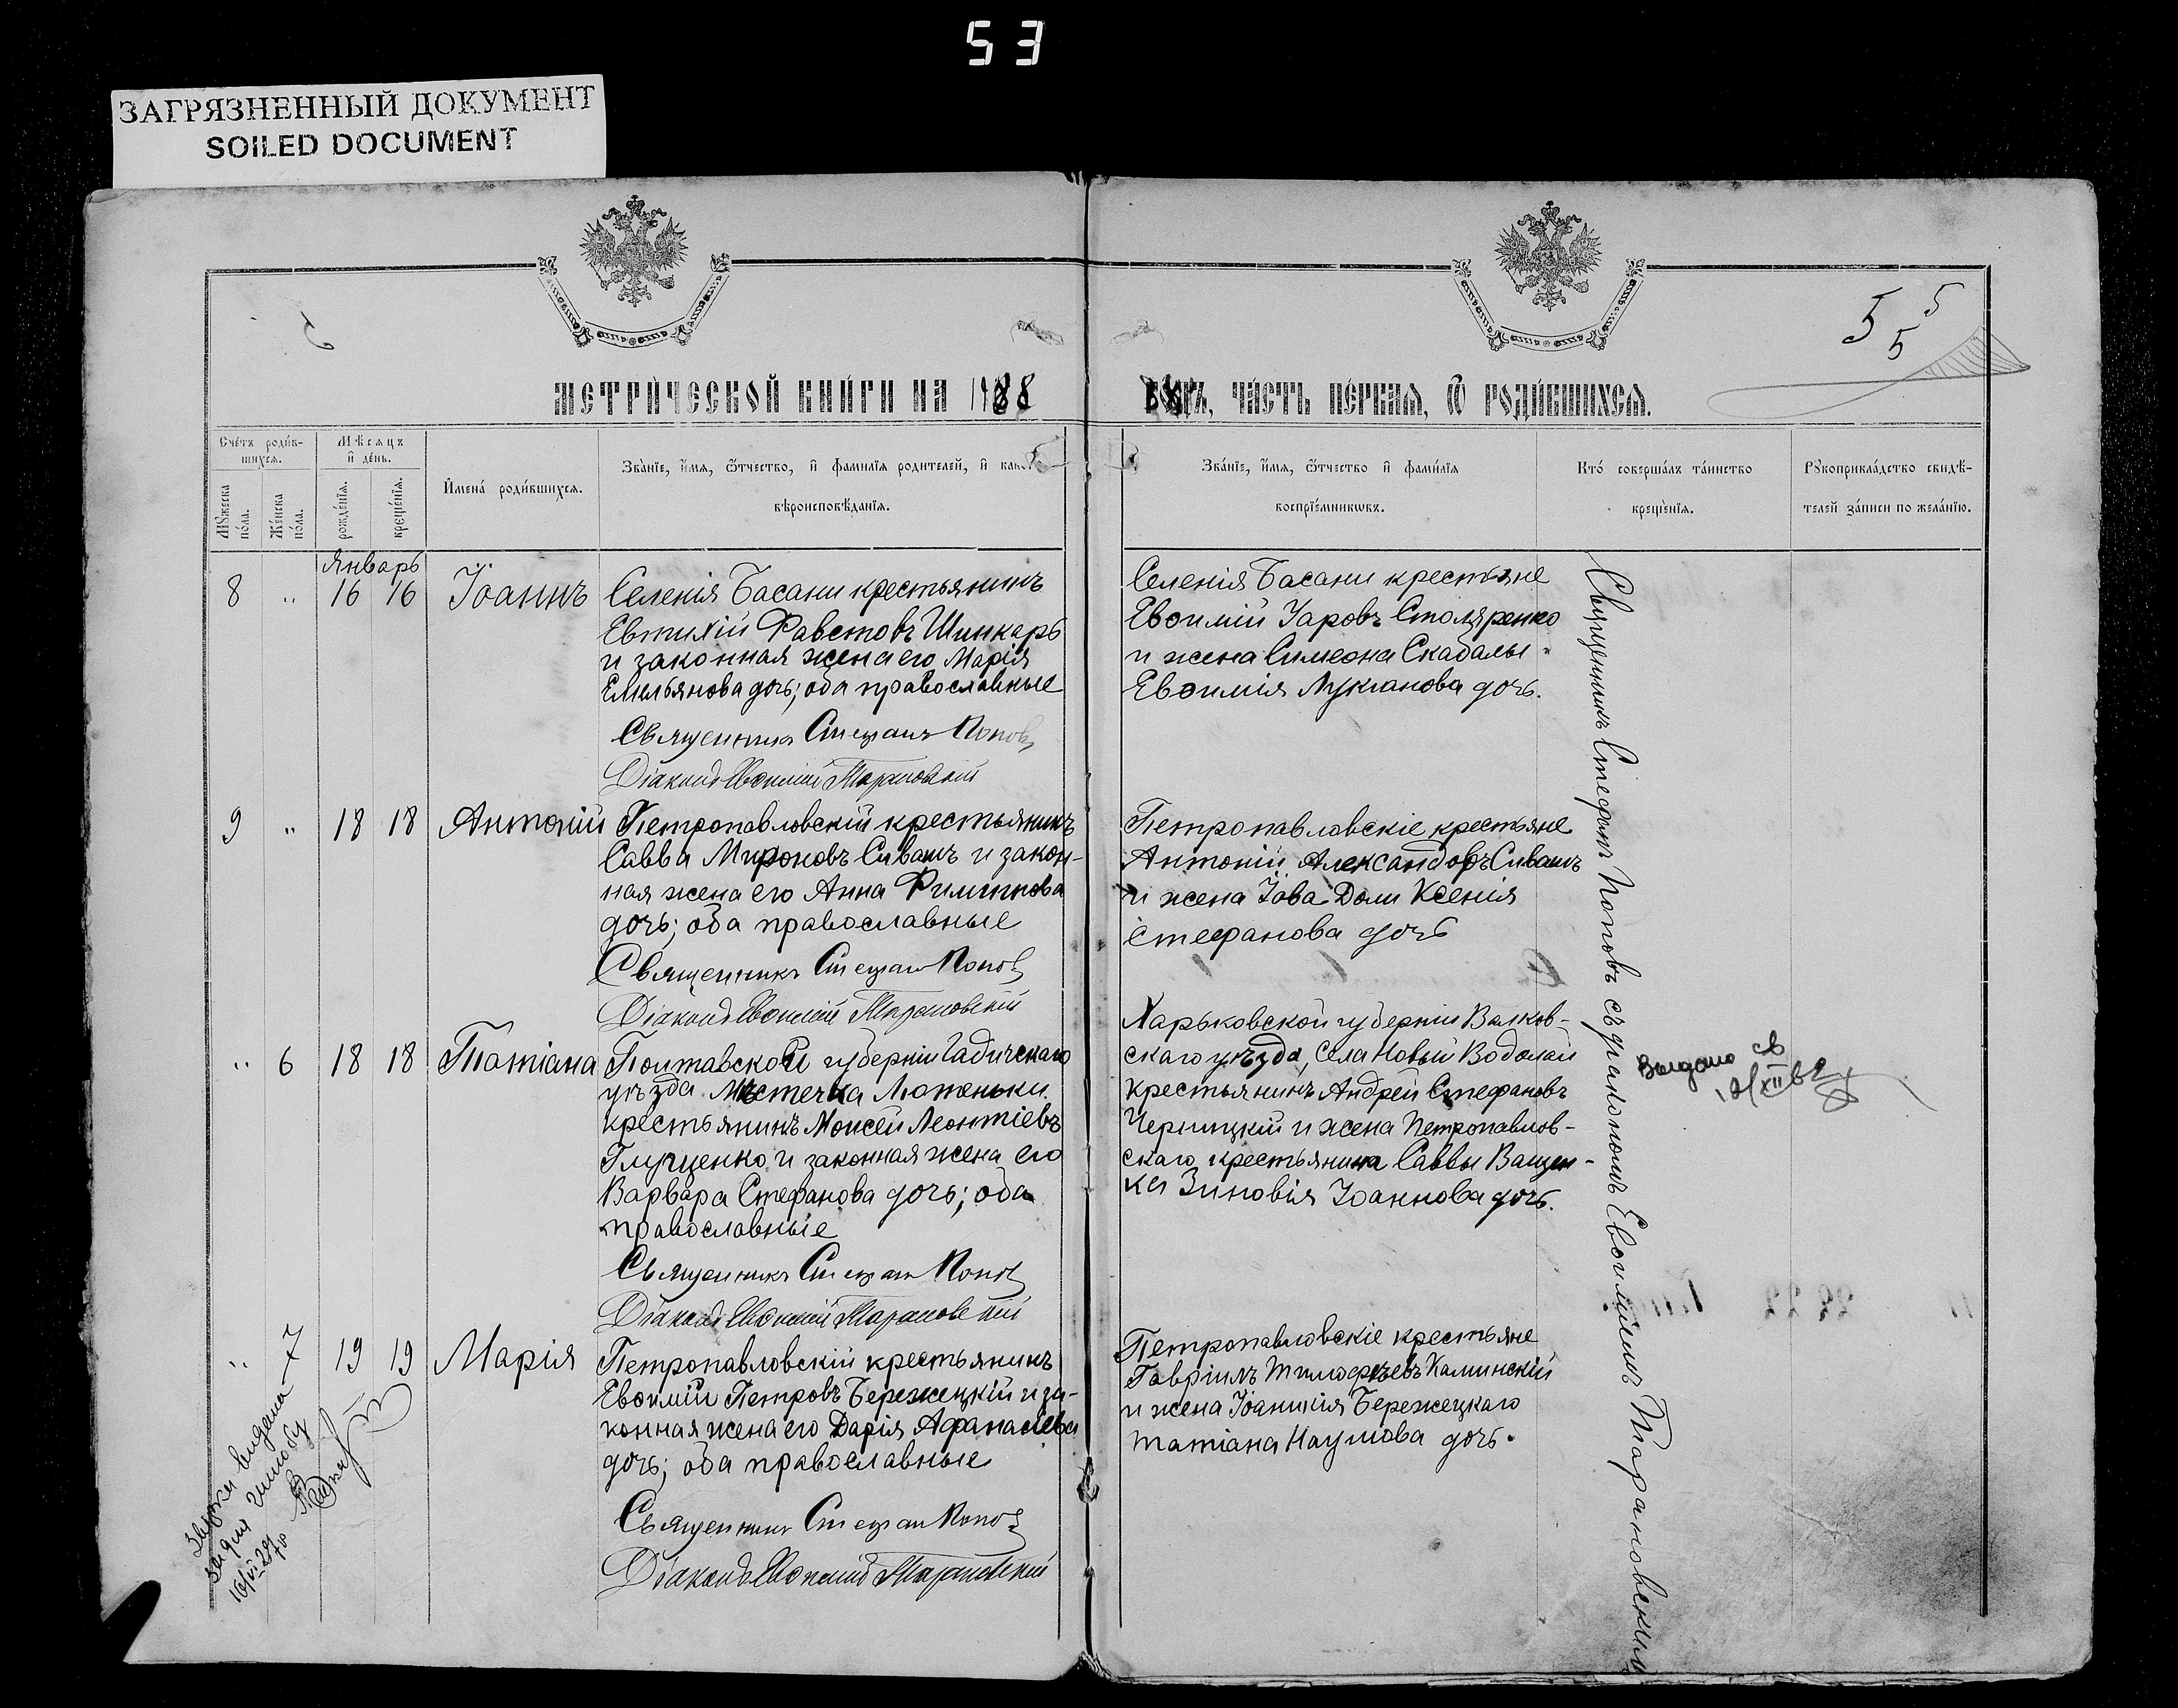 53
ЗАГРЯЗНЕННЫЙ ДОКУМЕНТ
SOILED DOCUMENT
5 5
5
МЕТРИ́ЧЕСКОЙ КНИ́ГИ НА 1888
ГОДЪ, ЧА́СТЬ ПЕ́РВАЯ, Ѿ РОДИ́ВШИХСЯ.
Сче́тъ роди́в-
шихся.
Мѣ́сяцъ
и҆ де́нь.
Мꙋ́жеска по́ла.
Же́нска по́ла.
рожде́нїя.
креще́нїя.
И҆мена́ роди́вшихся.
Зва́нїе, и҆́мя, ѻ҆́тчество, и҆ фами́лїя роди́телей, и҆
вѣроисповѣ́данїя.
Зва́нїе, и҆́мя, ѻ҆́тчество и҆ фами́лїя
воспрїе́мникѡвъ.
Кто́ соверша́лъ та́инство
креще́нїя.
Рꙋкоприкла́дство свидѣ́-
телей за́писи по жела́нїю.
Январь
8 " 16 16 Іоаннъ
Селенія Басани крестьянинъ
Евтихій Фавстовъ Шинкарь
и законная жена его Марія
Емельянова дочь; оба православные
Священникъ Стефанъ Поповъ
Діаконъ Евѳимій Тарановскій
Селенія Басани крестьяне
Евѳимій Уаровъ Столяренко
и жена Симеона Скабалы
Евѳимія Лукіанова дочь.
9 " 18 18 Антоній
Петропавловскій крестьянинъ
Савва Мироновъ Сивашъ и закон-
ная жена его Анна Филиппова
дочь; оба православные
Священникъ Стефанъ Поповъ
Діаконъ Евѳимій Тарановскій
Петропавловскіе крестьяне
Антоній Александровъ Сивашъ
и жена Іова Доли Ксенія
Стефанова дочь
" 6 18 18 Татіана
Полтавской губерніи Гадячскаго
уѣзда Мѣстечка Лютеньки
крестьянинъ Моисей Леонтіевъ
Глущенко и законная жена его
Варвара Стефанова дочь; оба
православные
Священникъ Стефанъ Поповъ
Діаконъ Евѳимій Тарановскій
Харьковской губерніи Валков-
скаго уѣзда, села Новый Водолаги
крестьянинъ Андрей Стефановъ
Черницкій и жена Петропавлов-
скаго крестьянина Саввы Ващен-
ка Зиновія Іоаннова дочь.
Выдано св
" 7 19 19 Марія
Петропавловскій крестьянинъ
Евѳимій Петровъ Бережецкій и за-
конная жена его Дарія Афанасіева
дочь; оба православные
Священникъ Стефанъ Поповъ
Діаконъ Евѳимій Тарановскій
Петропавловскіе крестьяне
Гавріилъ Тимофѣевъ Калинскій
и жена Іоанникія Бережецкаго
Татіана Наумова дочь.
Священникъ Стефанъ Поповъ съ діакономъ Евѳиміемъ Тарановскимъ